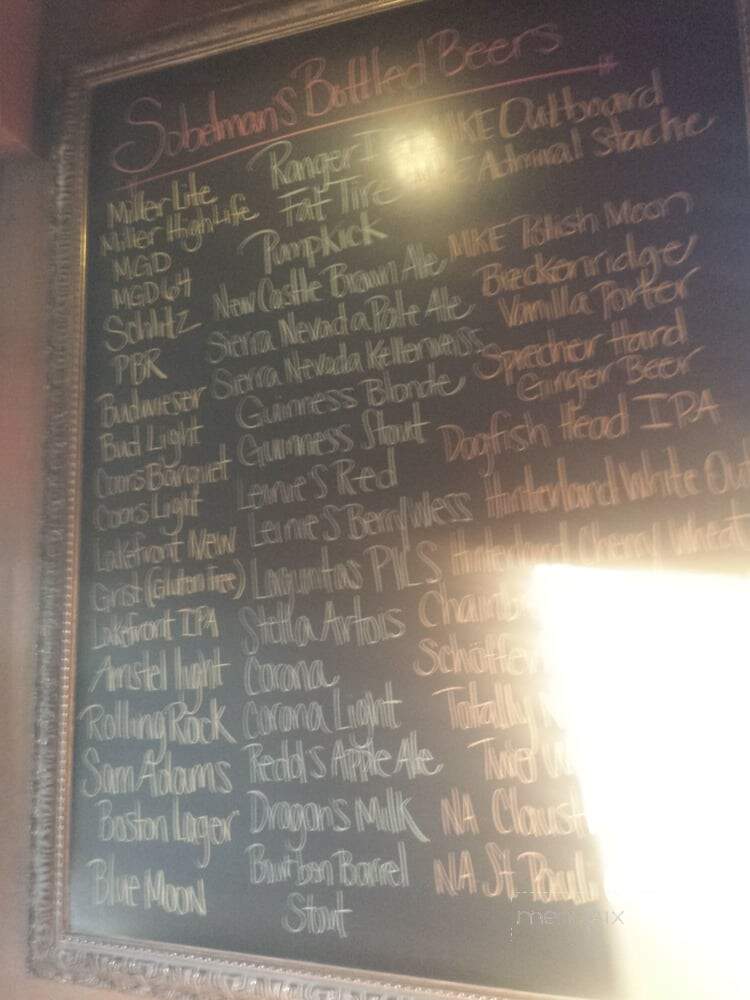 Sobelman's Bottled Beers
Miller Lite
Miller High Life
MGD
MGD 64
Schlitz
PBR
Budwieser
Bud Light
Coors Banquet
Coors Light
Lakefront New
Grist (Gluten Free)
Lakefront IPA
Amstel light
Rolling Rock
Sam Adams
Boston Lager
Blue Moon
Ranger
Fat Tire
Pumpkick
New Castle Brown Ale
Sierra Nevada Pale Ale
Sierra Nevada Kellerweiss
Guinness Blonde
Guinness Stout
Leinie's Red
Leinie's Berry Weiss
Lagunitas PILS
Stella Artois
Corona
Corona Light
Redd's Apple Ale
Dragon's Milk
Bourbon Barrel
Stout
MKE Outboard
Admiral Stache
MKE Polish Moon
Breckenridge
Vanilla Porter
Sprecher Hard
Ginger Beer
Dogfish Head IPA
Hinterland White Out
Hinterland Cherry Wheat
Totally
NA
NA St. Pauli
menupix